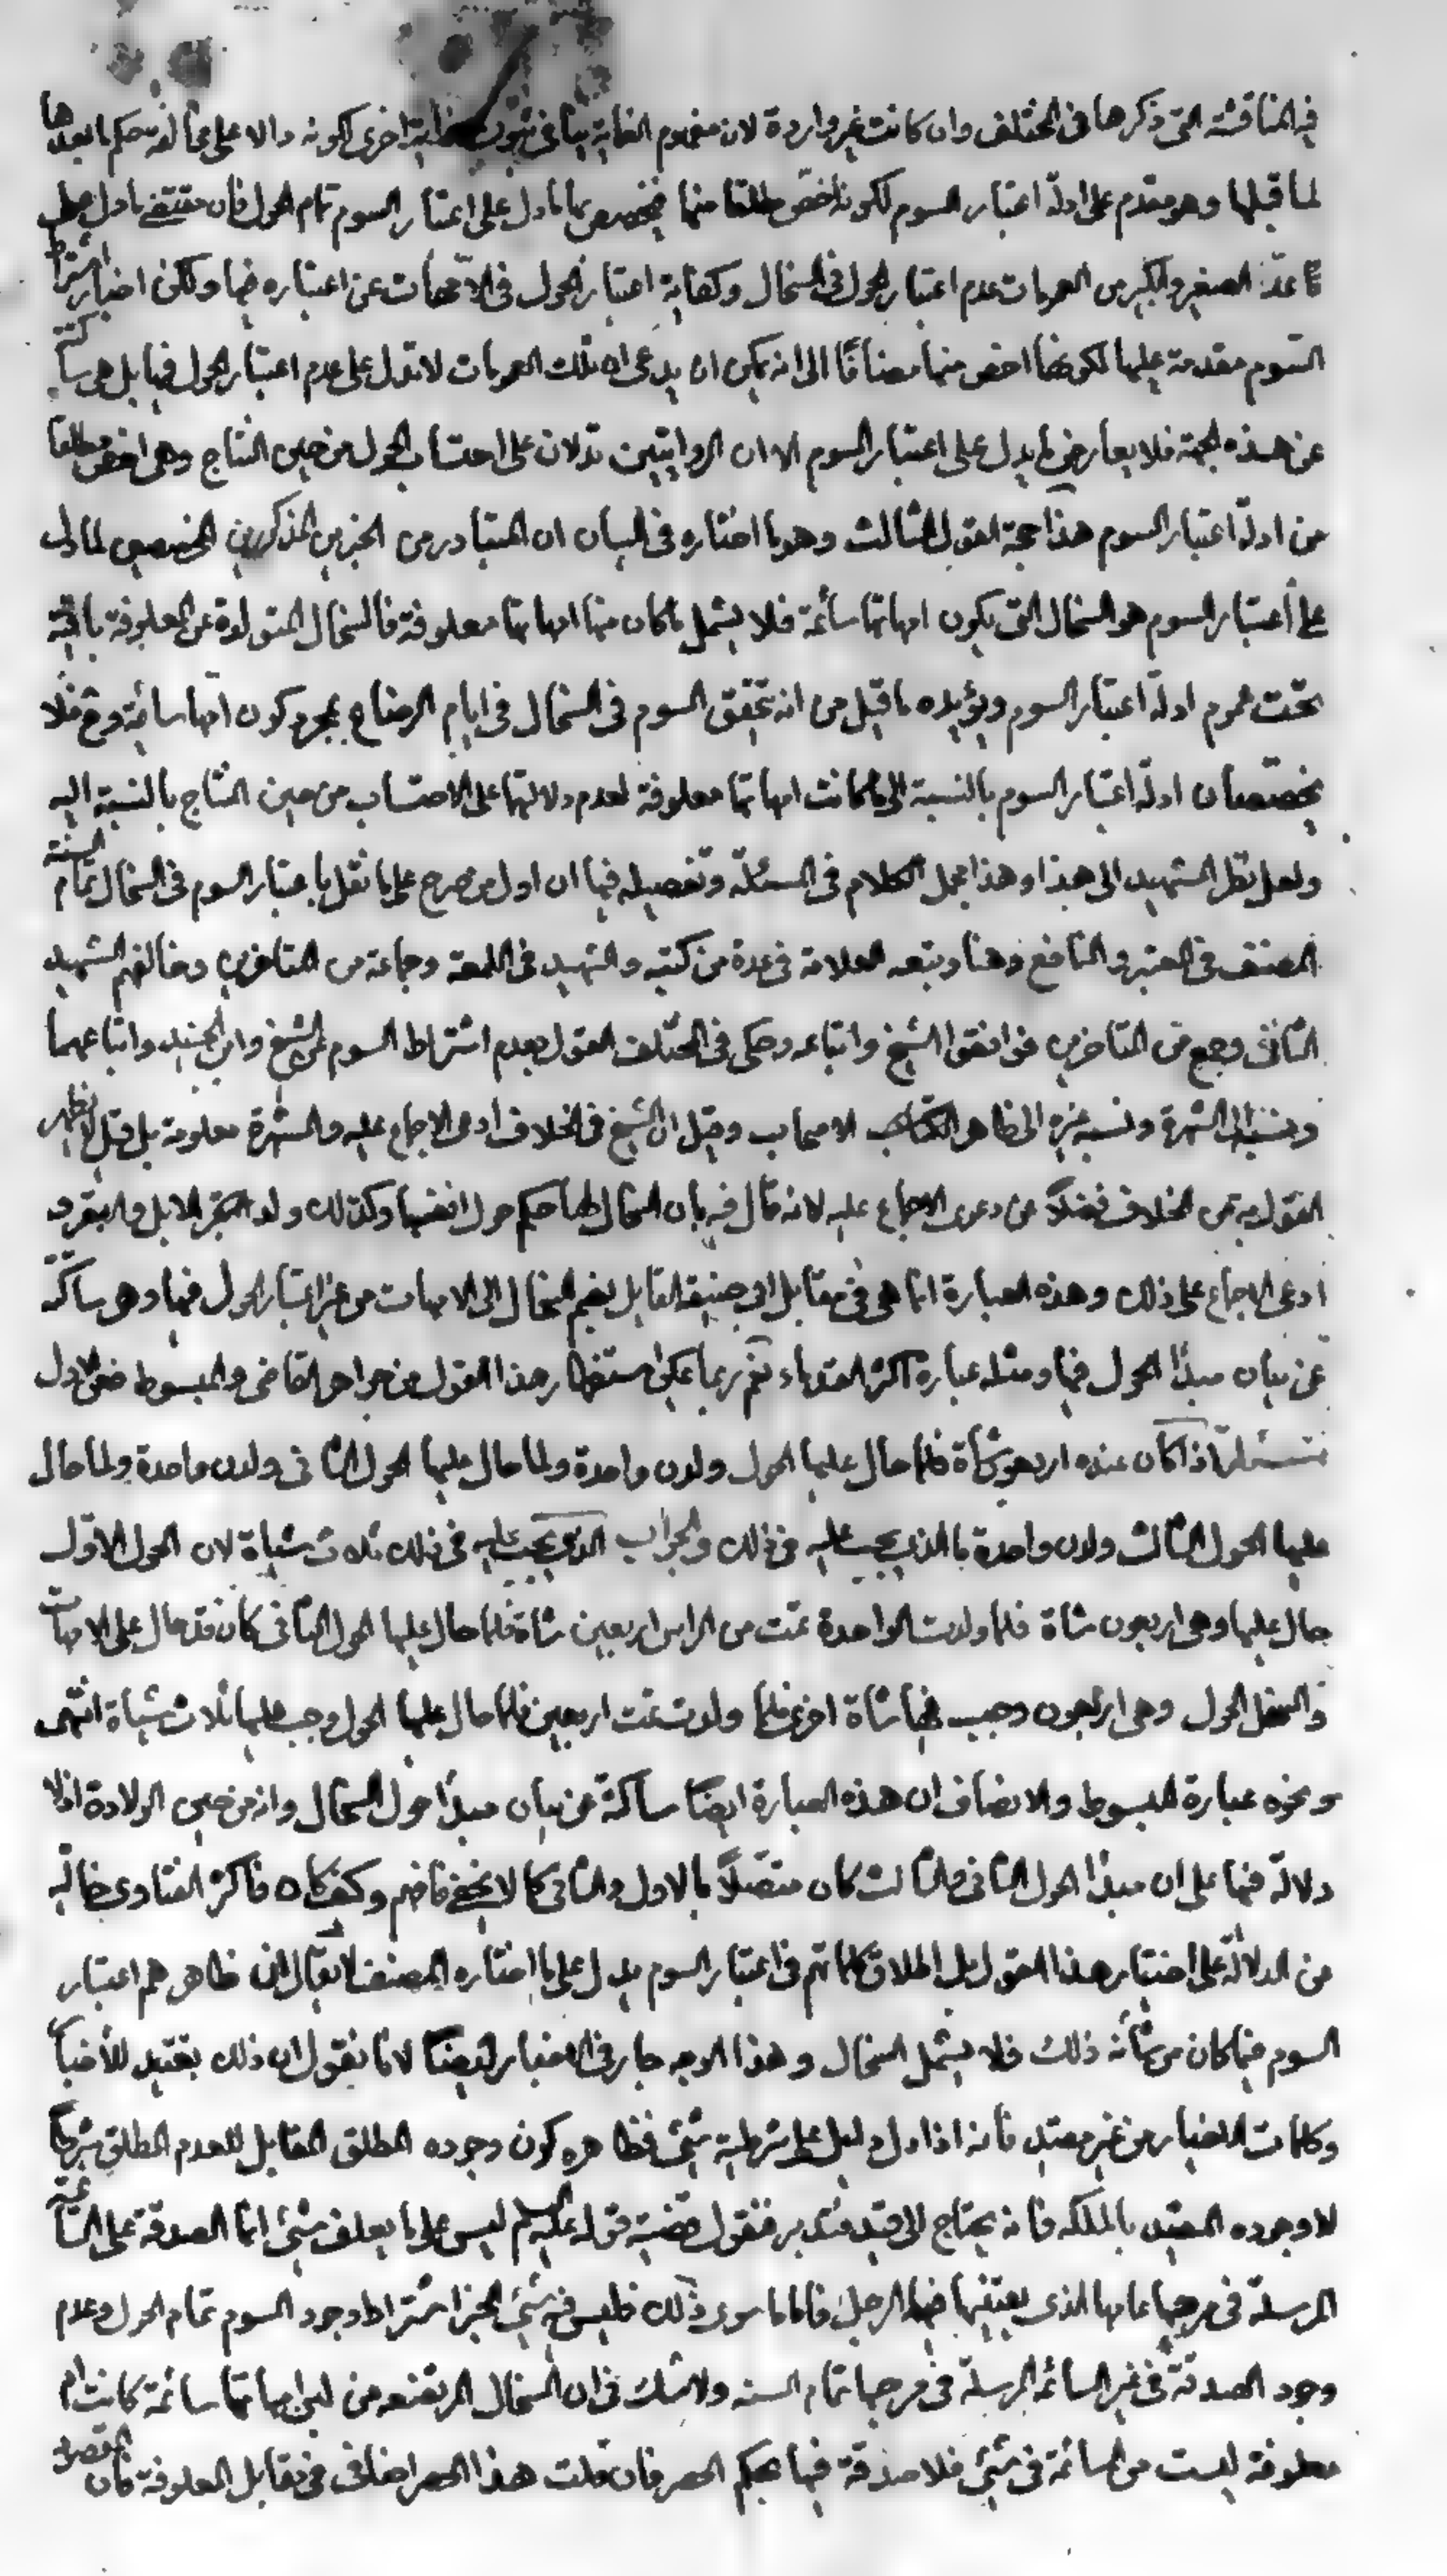 فيه المناقشة التى ذكرها فى المختلف وان كانت غير واردة لان مفهوم الغاية ينافى ثبوت غاية اخرى لكونه دالا على مخالفة حكم ما بعدها
لما قبلها وهو مقدم على ادلة اعتبار السوم لكونه اخص مطلقا منها فيخصص بها ما دل على اعتبار السوم تمام الحول فان مقتضى ما دل على
عدّ الصغير والكبير من العمومات عدم اعتبار الحول فى السخال وكفاية اعتبار الحول فى الامهات عن اعتباره فيها ولكن اخبار اشتراط
السوم مقدمة عليها لكونها اخص منها مضافا الى انه يمكن ان يدعى ان تلك العمومات لا تدل على عدم اعتبار الحول فيها بل هى ساكتة
عن هذه الجهة فلا يعارض ما يدل على اعتبار السوم الا ان الروايتين تدلان على احتساب الحول من حين النتاج وهى اخص مطلقا
من ادلة اعتبار السوم هذا حجة القول الثالث وهو ما اختاره فى البيان ان المتبادر من الخبرين المذكورين المخصصين لما دل
على اعتبار السوم هو السخال التى يكون امهاتها سائمة فلا يشمل ما كان منها امهاتها معلوفة فالسخال المتولدة عن المعلوفة باقية
تحت عموم ادلة اعتبار السوم ويؤيده ما قيل من انه تحقق السوم فى السخال فى ايام الرضاع بمجرد كون امها سائمة وح فلا
يخصصان ادلة اعتبار السوم بالنسبة الى ما كانت امهاتها معلوفة لعدم دلالتها على الاحتساب من حين النتاج بالنسبة اليه
ولعل نظر الشهيد الى هذا وهذا مجمل الكلام فى المسئلة وتفصيله فيها ان اول من صرح على ما نقل باعتبار السوم فى السخال تمام السنة
المصنف فى المعتبر والنافع وهنا وتبعه العلامة فى عدة من كتبه والشهيد فى اللمعة وجماعة من المتاخرين وخالفهم الشهيد
الثانى وجمع من المتاخرين فوافقوا الشيخ واتباعه وحكى فى المختلف القول بعدم اشتراط السوم عن الشيخ وابن الجنيد واتباعهما
ونسبه الى الشهرة ونسبه غيره الى ظاهر الاصحاب وقيل ان الشيخ فى الخلاف ادعى الاجماع عليه والشهرة معلومة بل قيل لا يظهر
القول به من الخلاف فضلا عن دعوى الاجماع عليه لانه قال فيه بان السخال لها حكم حول انفسها وكذلك ولد الابل والبقر و
ادعى الاجماع على ذلك وهذه العبارة انما هى فى مقابل ابى حنيفة القايل بضم السخال الى الامهات من غير اعتبار الحول فيها وهى ساكتة
عن بيان مبدأ الحول فيها ومثله عبارة اكثر القدماء نعم ربما يمكن استظهار هذا القول من جواهر القاضى والمبسوط ففى الاول
مسئلة اذا كان عنده اربعون شاة فلما حال عليها الحول ولدن واحدة ولما حال عليها الحول الثانى ولدن واحدة ولما حال
عليها الحول الثالث ولدن واحدة ما الذى يجب عليه فى ذلك والجواب الذى يجب عليه فى ذلك ثلاث شياة لان الحول الاول
حال عليها وهى اربعون شاة فلما ولدت الواحدة تمت من الراس اربعين شاة فلما حال عليها الحول الثانى كان قد حال على الامهات
والسخل الحول وهى اربعون وجب فيها شاة اخرى فلما ولدت تمت اربعين فلما حال عليها الحول وجب عليها ثلاث شياة انتهى
ونحوه عبارة المبسوط والانصاف ان هذه العبارة ايضا ساكتة عن بيان مبدأ حول السخال وانه من حين الولادة اذ لا
دلالة فيها على ان مبدأ الحول الثانى والثالث كان متصلا بالاول والثانى كما لا يخفى فافهم وكيف كان فاكثر الفتاوى خالية
من الدلالة على اختيار هذا القول بل اطلاق كلماتهم فى اعتبار السوم يدل على ما اختاره المصنف لا يقال ان ظاهرهم اعتبار
السوم فيما كان من شأنه ذلك فلا يشمل السخال وهذا الوجه جار فى الاخبار ايضا لانا نقول ان ذلك تقييد للأخبار
وكلمات الاخيار من غير مقيد فانه اذا دل دليل على شرطية شئ فظاهره كون وجوده المطلق المقابل للعدم المطلق شرطا
لا وجوده المقيد بالملكه فانه يحتاج الى قيد فتدبر فنقول قضية قوله عليه السلم ليس على ما يعلف شئ انما الصدقة على السائمة
المرسلة فى مرجها عامها الذى يقتنيها فيها الرجل فاما ما سوى ذلك فليس فيه شئ الخبر اشتراط وجود السوم تمام الحول وعدم
وجود الصدقة فى غير السائمة المرسلة فى مرجها تمام السنه ولا شك فى ان السخال المرتضعه من لبن امهاتها سائمة كانت ام
معلوفة ليست من السائمة فى شئ فلا صدقة فيها بحكم الحصر فان قلت هذا الحصر اضافى فى مقابل المعلوفة فان المقصود